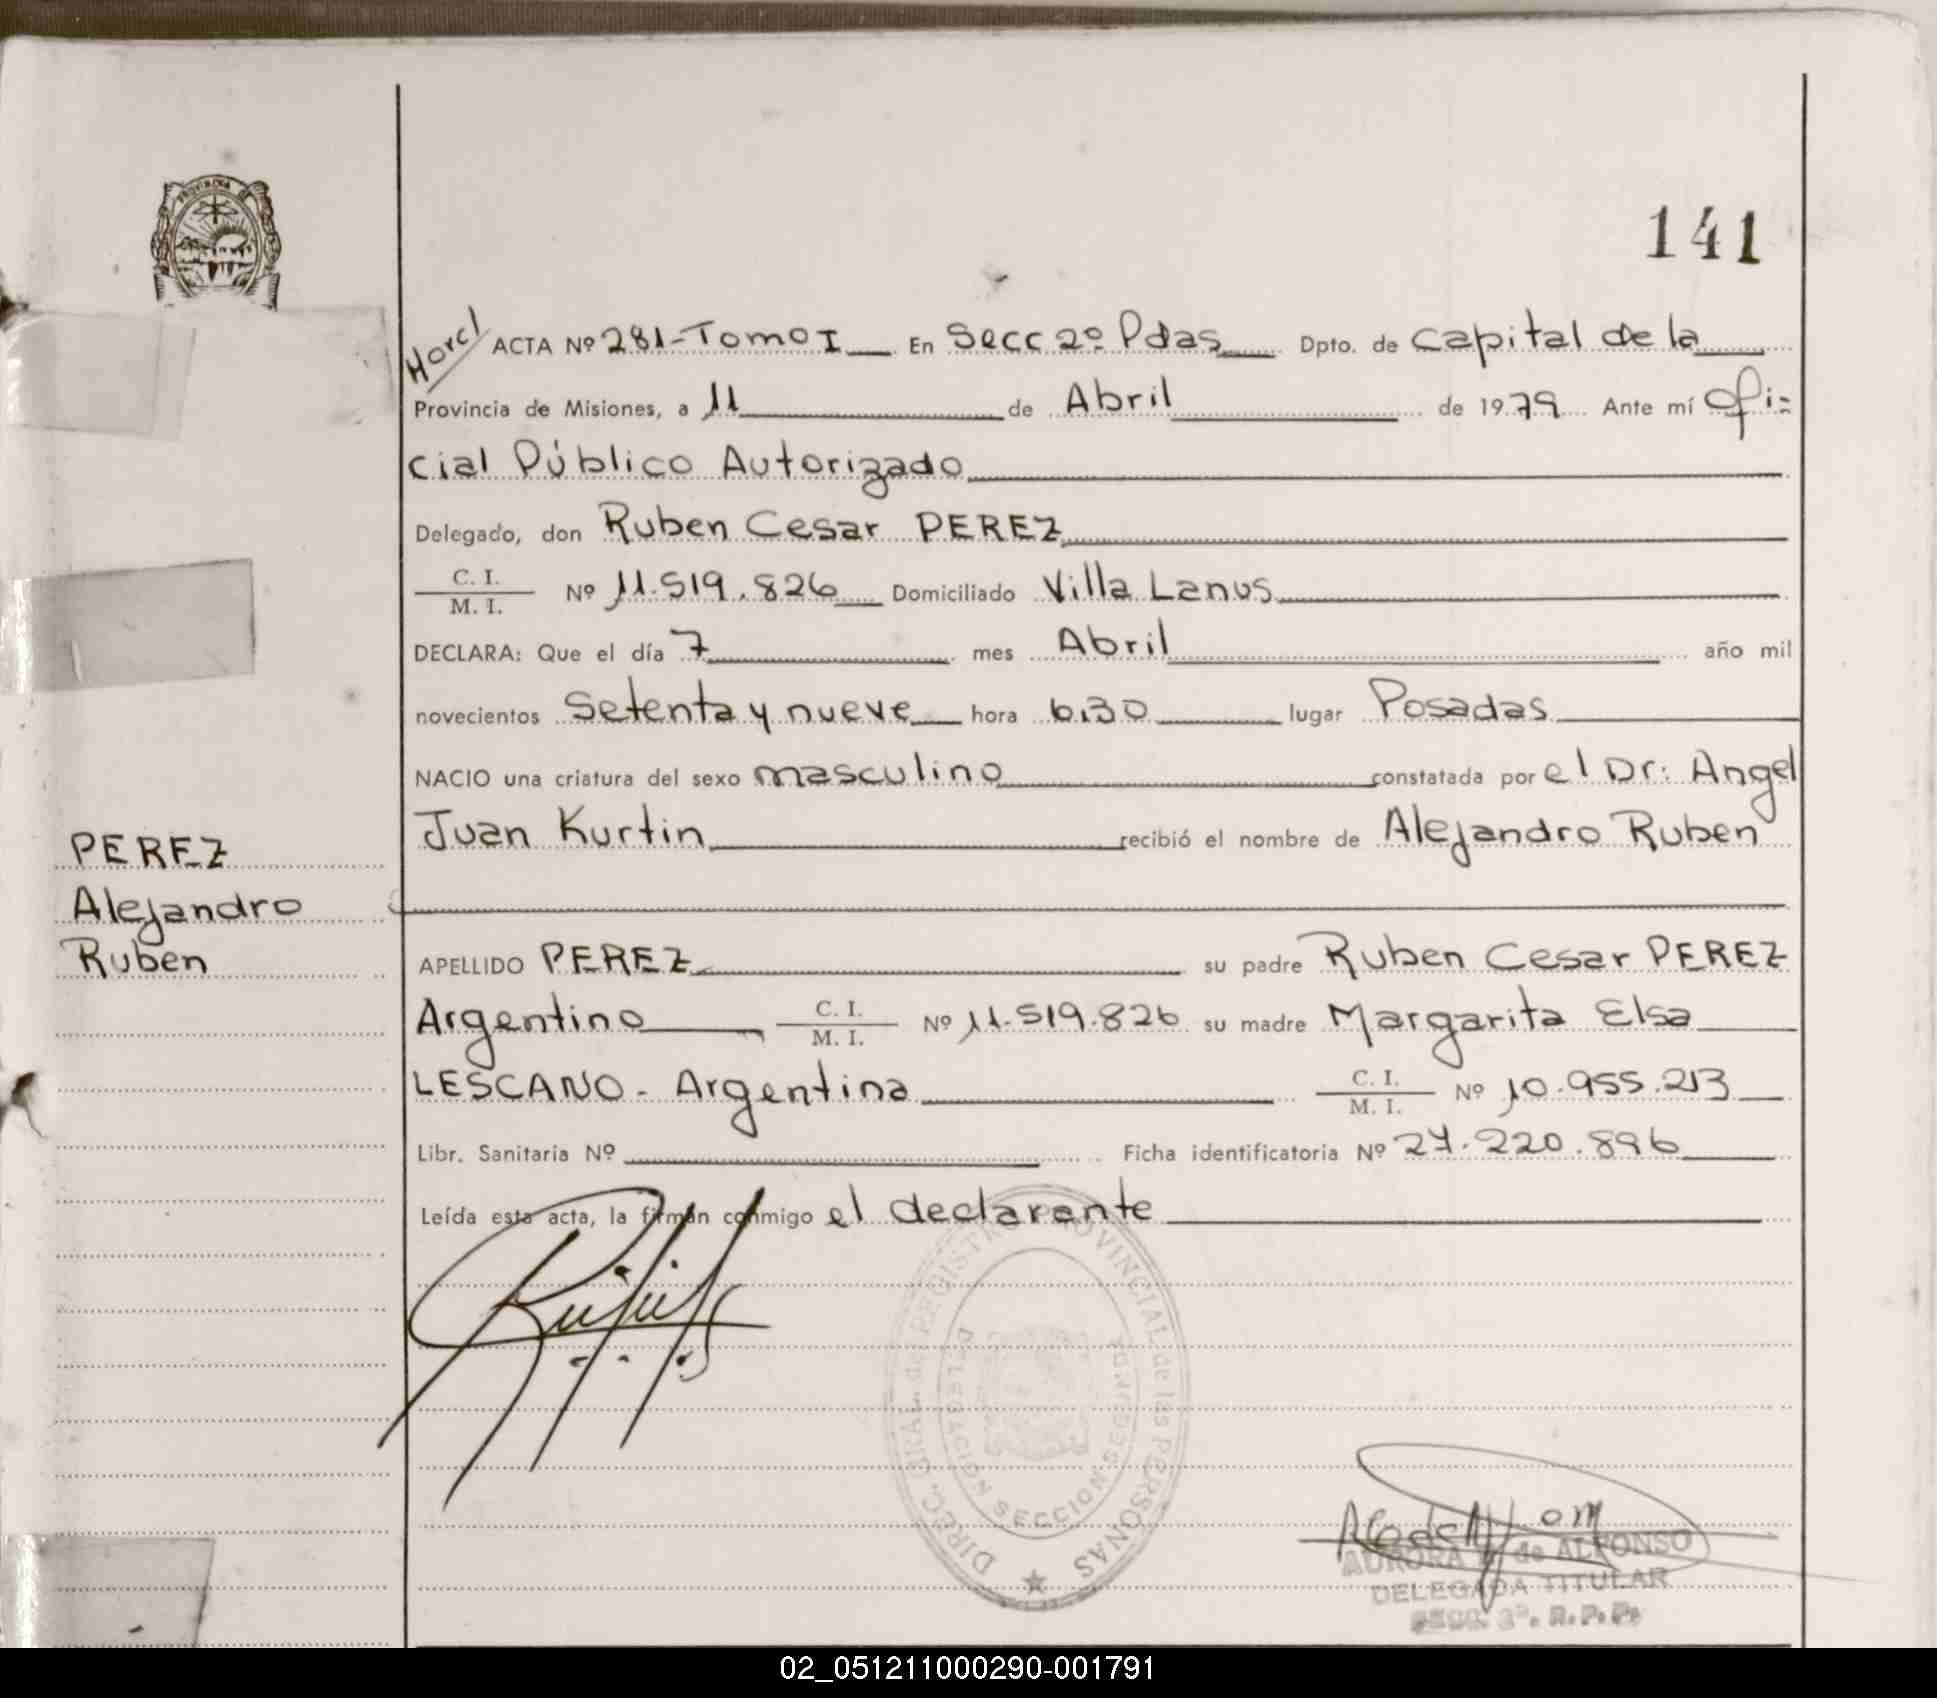 PROVINCIA DE
141
Horcl ACTA Nº 281-Tomo I En Secc 2º Pdas Dpto. de Capital de la
Provincia de Misiones, a 11 de Abril de 1979 Ante mí Ofi=
cial Público Autorizado
Delegado, don Ruben Cesar PEREZ
C. I.
M. I. Nº 11.519.826 Domiciliado Villa Lanus
DECLARA: Que el día 7 mes Abril año mil
novecientos Setenta y nueve hora 6.30 lugar Posadas
NACIO una criatura del sexo masculino constatada por el Dr: Angel
Juan Kurtin recibió el nombre de Alejandro Ruben
PEREZ
Alejandro
Ruben
APELLIDO PEREZ su padre Ruben Cesar PEREZ
Argentino C. I.
M. I. Nº 11.519.826 su madre Margarita Elsa
LESCANO - Argentina C. I.
M. I. Nº 10.955.213
Libr. Sanitaria Nº Ficha identificatoria Nº 27.220.896
Leída esta acta, la firman conmigo el declarante
DIREC. GRAL. del REGISTRO PROVINCIAL de las PERSONAS
DELEGACION SECCION SEGUNDA
AURORA de ALFONSO
DELEGADA TITULAR
SECC. 2ª. R.P.P.
02_051211000290-001791